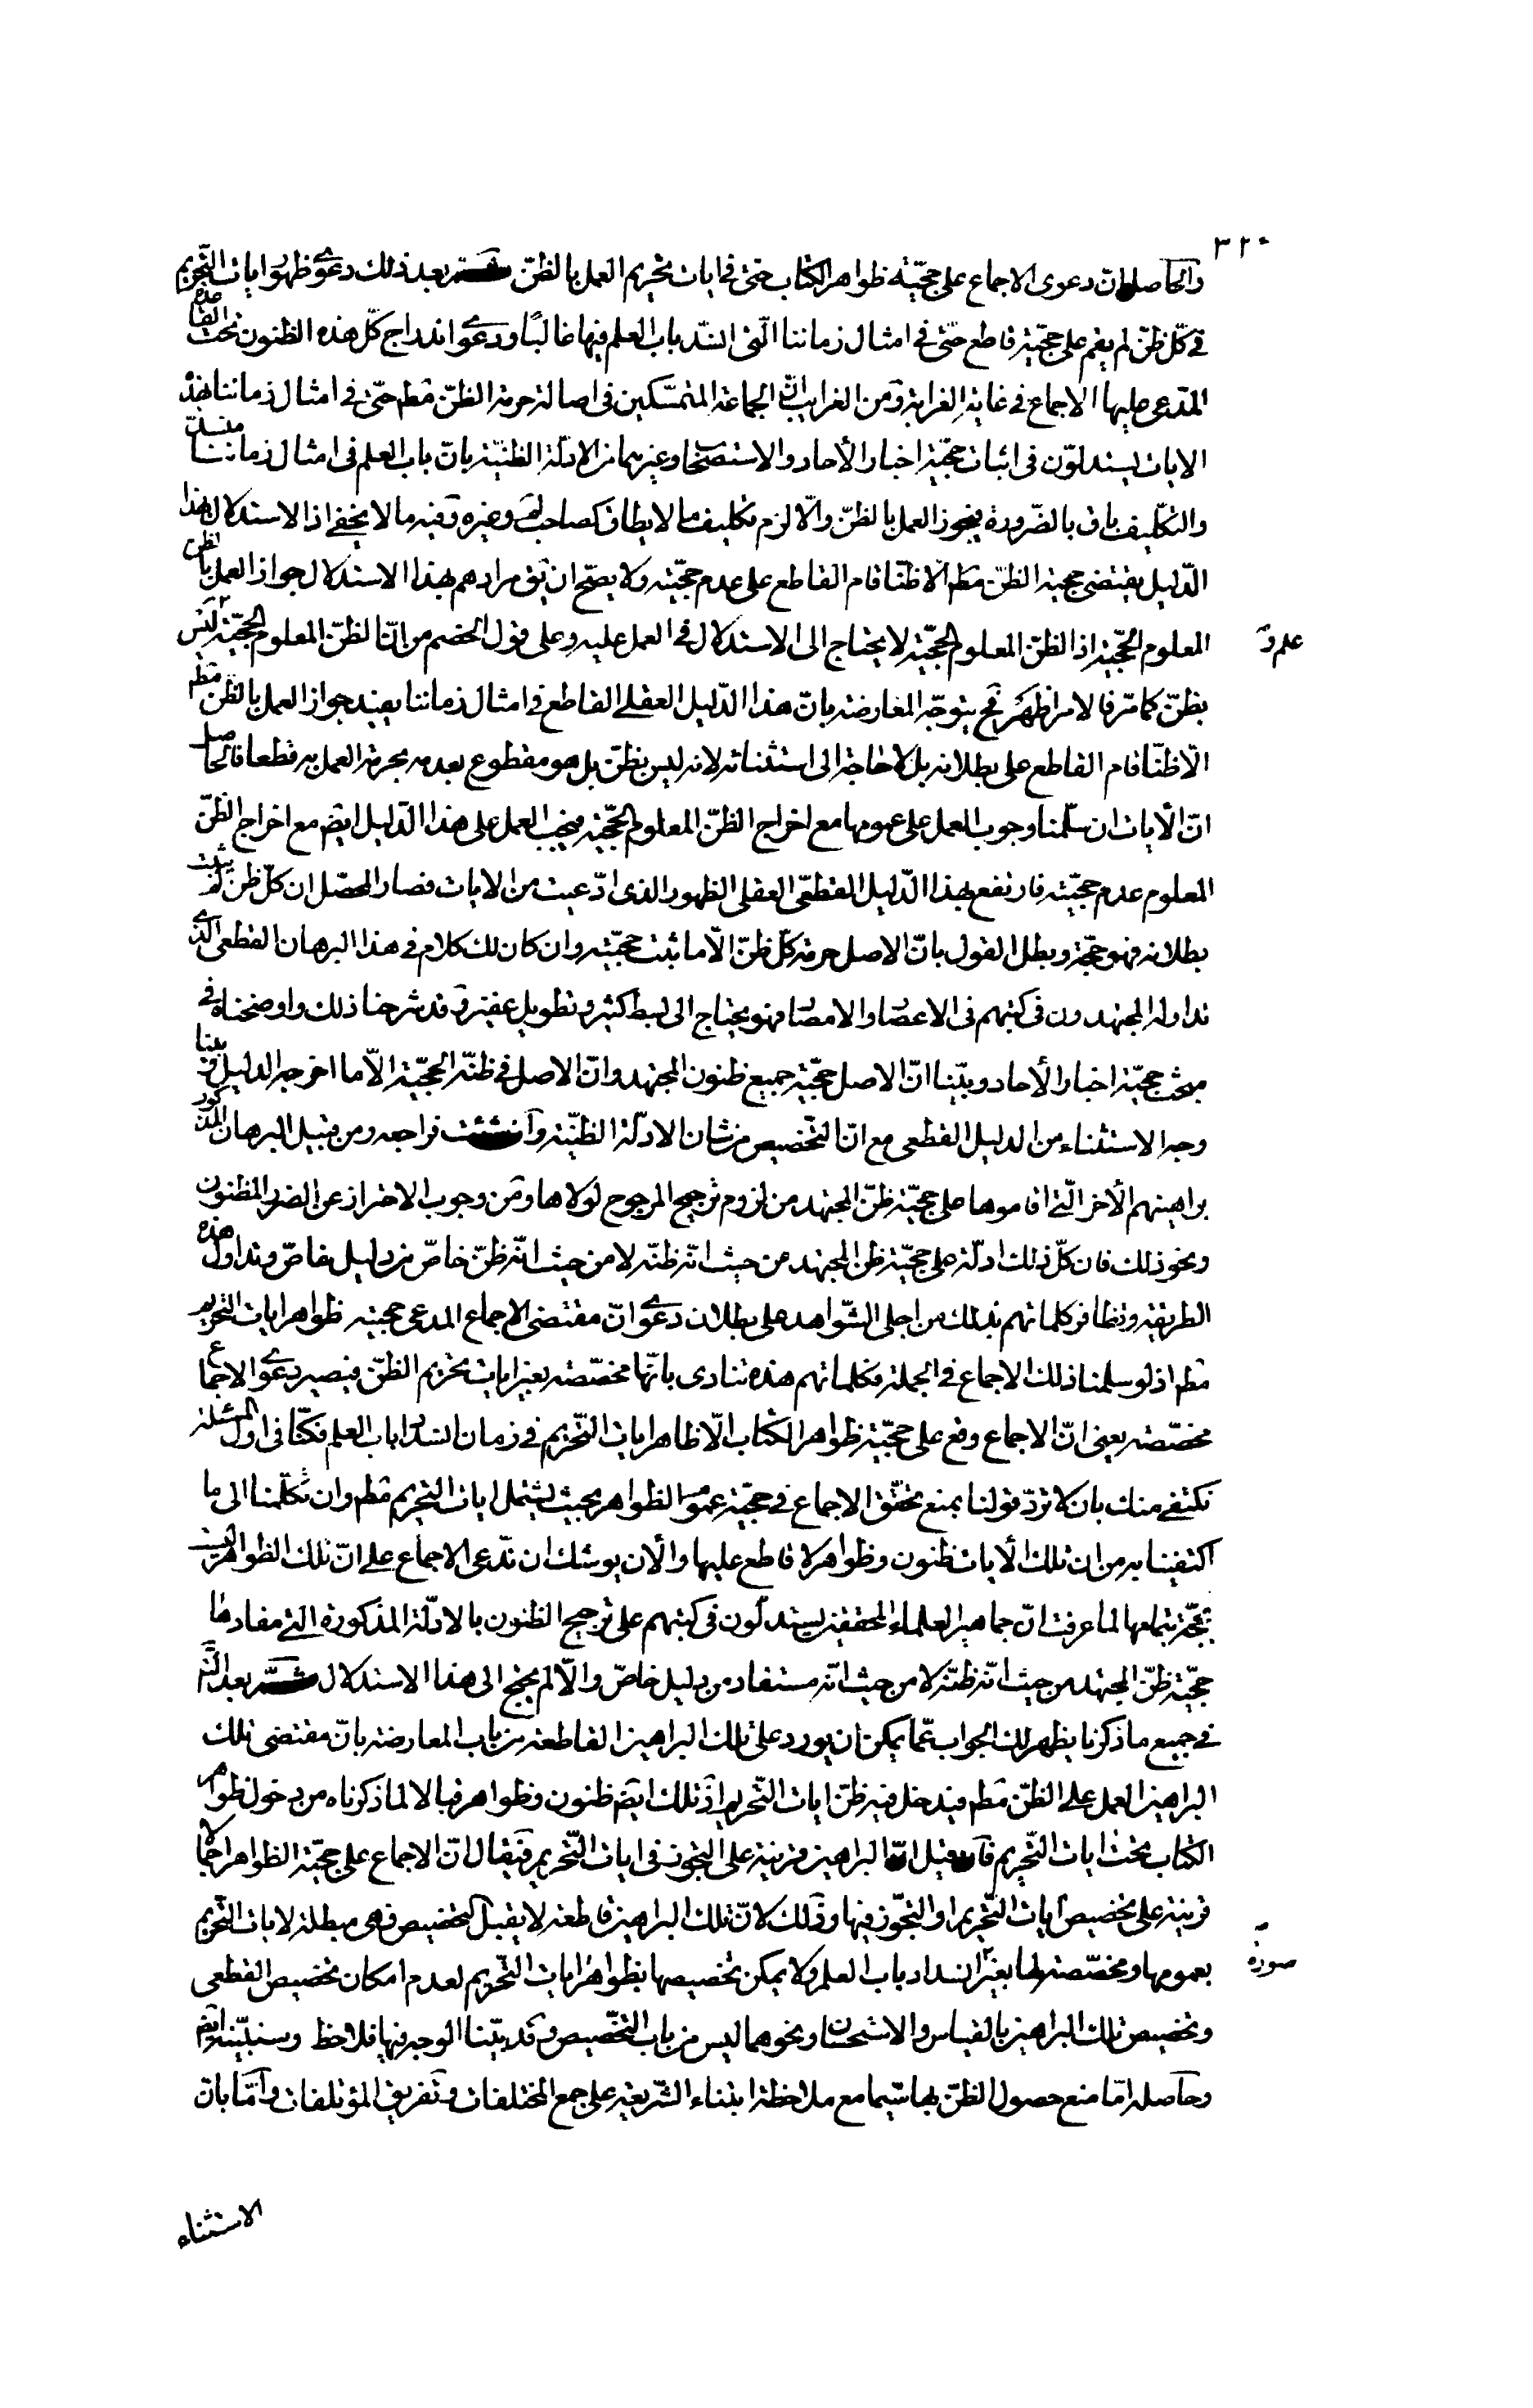 ٣٢٠
والحاصل ان دعوى الاجماع على حجّيّة ظواهر الكتاب حتى فى ايات تحريم العمل بالظنّ ثم بعد ذلك دعوى ظهور ايات التّحريم
فى كلّ ظنّ لم يقم على حجّيّته قاطع حتّى فى امثال زماننا الّتى انسدّ باب العلم فيها غالبًا ودعوى اندراج كلّ هذه الظنون تحت القاعدة
المدّعى عليها الاجماع فى غاية الغرابة ومن الغرايب انّ الجماعة المتمسّكين فى اصالة حرمة الظنّ مطم حتّى فى امثال زماننا بهذه
الايات يستدلّون فى اثبات حجّيّة اخبار الأحاد والاستصحاب وغيرهما من الادلّة الظنيّة بانّ باب العلم فى امثال زماننا منسدّ
والتّكليف باق بالضّرورة فيجوز العمل بالظنّ والّا لزم تكليف ما لا يطاق كصاحب لم وغيره وفيه ما لا يخفى اذ الاستدلال بهذا
الدّليل يقتضى حجية الظنّ مطم الّا ظنّا قام القاطع على عدم حجّيّته ولا يصحّ ان يق مرادهم بهذا الاستدلال جواز العمل بالظن
المعلوم الحجّية اذ الظنّ المعلوم الحجّيّة لا يحتاج الى الاستدلال فى العمل عليه وعلى قول الخصم من انّ الظنّ المعلوم الحجّيّة ليس
علم و
بظنّ كما مرّ فالامر اظهر فح يتوجّه المعارضة بانّ هذا الدّليل العقلى القاطع فى امثال زماننا يفيد جواز العمل بالظن مطم
الّا ظنّا قام القاطع على بطلانه بل لا حاجة الى استثنائه لانه ليس بظنّ بل هو مقطوع بعدمه بحرمة العمل به قطعا فالحاصل
انّ الأيات ان سلّمنا وجوب العمل على عمومها مع اخراج الظنّ المعلوم الحجّية فيجب العمل على هذا الدّليل ايضا مع اخراج الظنّ
المعلوم عدم حجّيّته فارتفع بهذا الدّليل القطعّى العقلى الظهور الذى ادّعيت من الايات فصار المحصّل ان كلّ ظن لم يثبت
بطلانه فهو حجّة وبطل القول بانّ الاصل حرمة كلّ ظنّ الّا ما ثبت حجّيّته وان كان لك كلام فى هذا البرهان القطعى الذى
تداوله المجتهدون فى كتبهم فى الاعصار والامصار فهو يحتاج الى بسط كثير وتطويل غفير وقد شرحنا ذلك واوضحناه فى
مبحث حجيّة اخبار الأحاد وبيّنا انّ الاصل حجّيّة جميع ظنون المجتهد وانّ الاصل فى ظنّه الحجّيّة الّا ما اخرجه الدليل وبينا
وجه الاستثناء من الدليل القطعى مع انّ التّخصيص من شان الادلّة الظنّيّة وان شئت فراجعه ومن قبيل البرهان المذكور
براهينهم الأخر الّتى اقاموها على حجّيّة ظنّ المجتهد من لزوم ترجيح المرجوح لولاها ومن وجوب الاحتراز عن الضرر المظنون
ونحو ذلك فان كلّ ذلك ادلّة على حجّيّة ظن المجتهد من حيث انّه ظنّه لا من حيث انّه ظنّ خاصّ من دليل خاصّ وتداول هذه
الطريقة وتظافر كلماتهم بذلك من اجلى الشّواهد على بطلان دعوى انّ مقتضى الاجماع المدعى حجية ظواهر ايات التحريم
مطم اذ لو سلمنا ذلك الاجماع فى الجملة فكلماتهم هذه تنادى بانّها مخصّصة بغير ايات تحريم الظنّ فيصير دعوى الاجماع
مخصّصة يعنى انّ الاجماع وقع على حجيّة ظواهر الكتاب الّا ظاهر ايات التّحريم فى زمان انسداد باب العلم فكنّا فى اول المسئلة
نكتفى منك بان لا تردّ قولنا بمنع تحقّق الاجماع فى حجيّة عموم الظواهر بحيث يشتمل ايات التحريم مطم وان تكلّمنا الى ما
اكتفينا به من ان تلك الأيات ظنون وظواهر لا قاطع عليها والأن يوشك ان ندّعى الاجماع على انّ تلك الظواهر ليست
بحجّة بتمامها لما عرفت انّ جماهير العلماء المحققين يستدلّون فى كتبهم على ترجيح الظنون بالادلّة المذكورة التى مفادها
حجيّة ظنّ المجتهد من حيث انّه ظنّه لا من حيث انّه مستفاد من دليل خاصّ والّا لم يحتج الى هذا الاستدلال ثمّ بعد
فى جميع ما ذكرنا يظهر لك الجواب عمّا يمكن ان يورد على تلك البراهين القاطعة من باب المعارضة بانّ مقتضى تلك
البراهين العمل على الظنّ مطم فيدخل فيه ظنّ ايات التّحريم اذ تلك ايضم ظنون وظواهر فبالا لما ذكرناه من دخول ظواهر
الكتاب تحت ايات التّحريم فان قيل انّ البراهين قرينة على التجوز فى ايات التّحريم فيقال انّ الاجماع على حجّية الظواهر اجمالا
قرينة على تخصيص ايات التّحريم او التّجوّز فيها وذلك لانّ تلك البراهين قاطعة لا يقبل التخصيص فهى مبطلة لايات التّحريم
بعمومها ومخصّصة لها بغير انسداد باب العلم ولا يمكن تخصيصها بظواهر ايات التّحريم لعدم امكان تخصيص القطعى
صورة
وتخصيص تلك البراهين بالقياس والاستحسان ونحوهما ليس من باب التّخصيص وقد بيّنا الوجه فيها فلاحظ وسنبيّنه ايضم
وحاصله امّا منع حصول الظنّ بها سيّما مع ملاحظة ابتناء الشّريعة على جمع المختلفات وتفريق المؤتلفات وامّا بان
الاستثناء